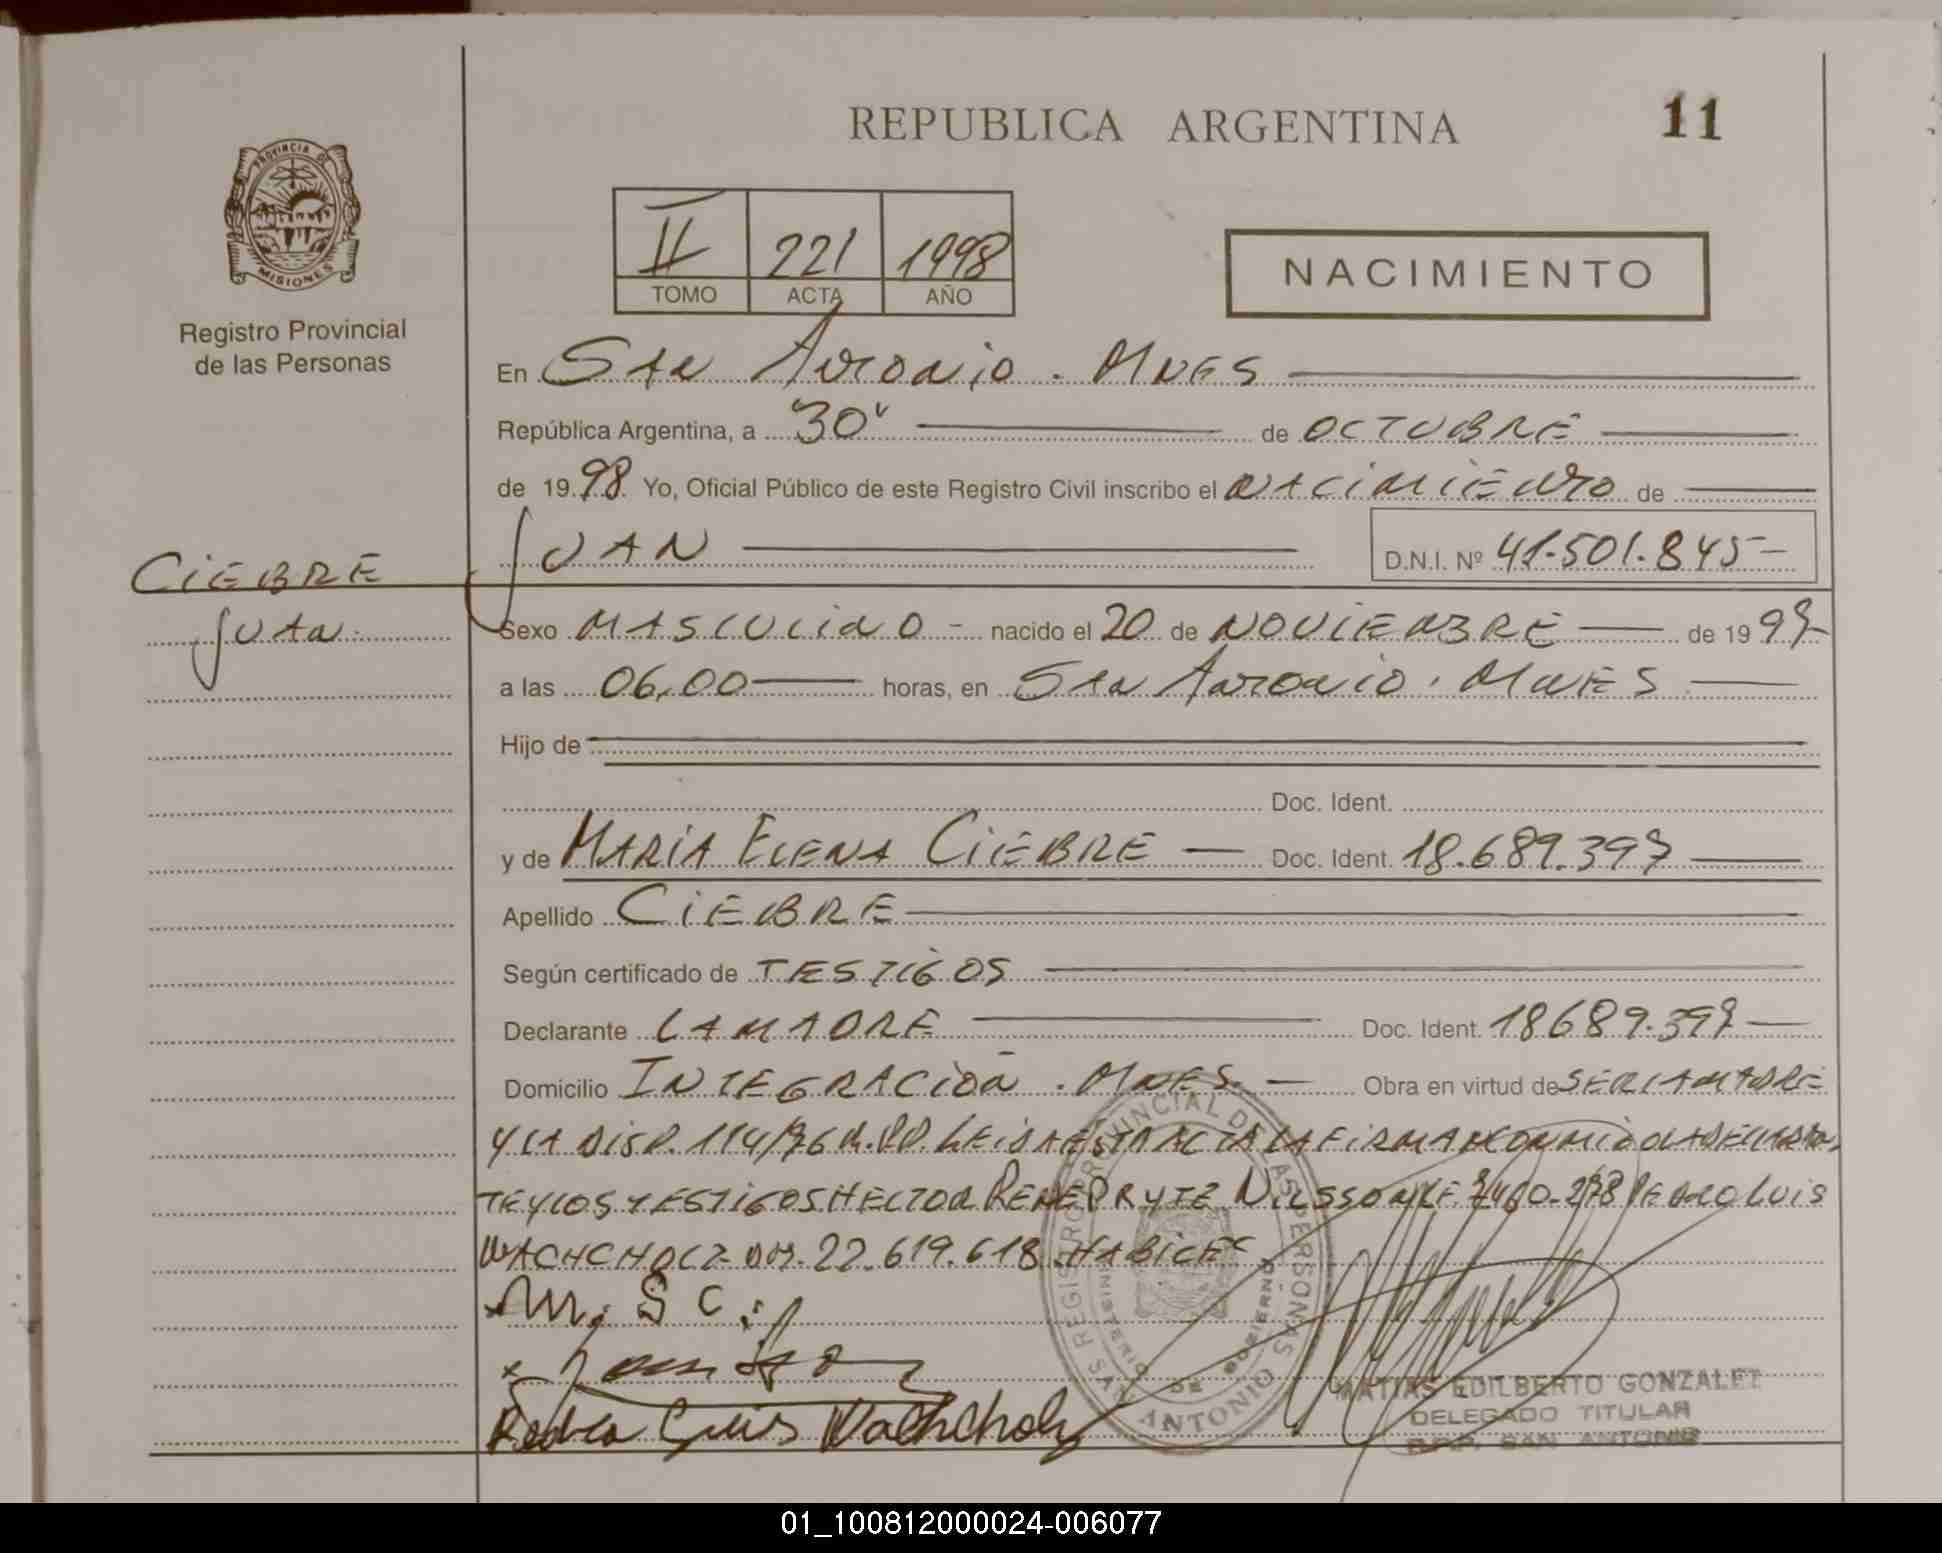 REPUBLICA ARGENTINA
11
PROVINCIA DE
MISIONES
Registro Provincial
de las Personas
II 221 1998
TOMO ACTA AÑO
NACIMIENTO
En SAN ANTONIO. MNES
República Argentina, a 30 de OCTUBRE
de 1998 Yo, Oficial Público de este Registro Civil inscribo el NACIMIENTO de
JUAN D.N.I. Nº 41.501.845
CIEBRE
JUAN
Sexo MASCULINO - nacido el 20 de NOVIEMBRE de 1997
a las 06,00 horas, en SAN ANTONIO. MNES
Hijo de
Doc. Ident.
y de MARÍA ELENA CIEBRE Doc. Ident. 18.689.397
Apellido CIEBRE
Según certificado de TESTIGOS
Declarante LA MADRE Doc. Ident. 18689.397
Domicilio INTEGRACIÓN. MNES. Obra en virtud de SER LA MADRE
Y LA DISP. 114/96 R.PP. LEIDA ESTA ACTA LA FIRMAN CONMIGO LA DECLARAN-
TE Y LOS TESTIGOS HECTOR RENE PRYTZ NILSSON LE 7460.278 PEDRO LUIS
WACHCHOLZ DNI. 22.619.618. HABILES
M. S C.
Pedro Luis Wachcholz
REGISTRO PROVINCIAL DE LAS PERSONAS
MINISTERIO DE GOBIERNO
SAN ANTONIO
MATIAS EDILBERTO GONZALEZ
DELEGADO TITULAR
R.P.P. SAN ANTONIO
01_100812000024-006077